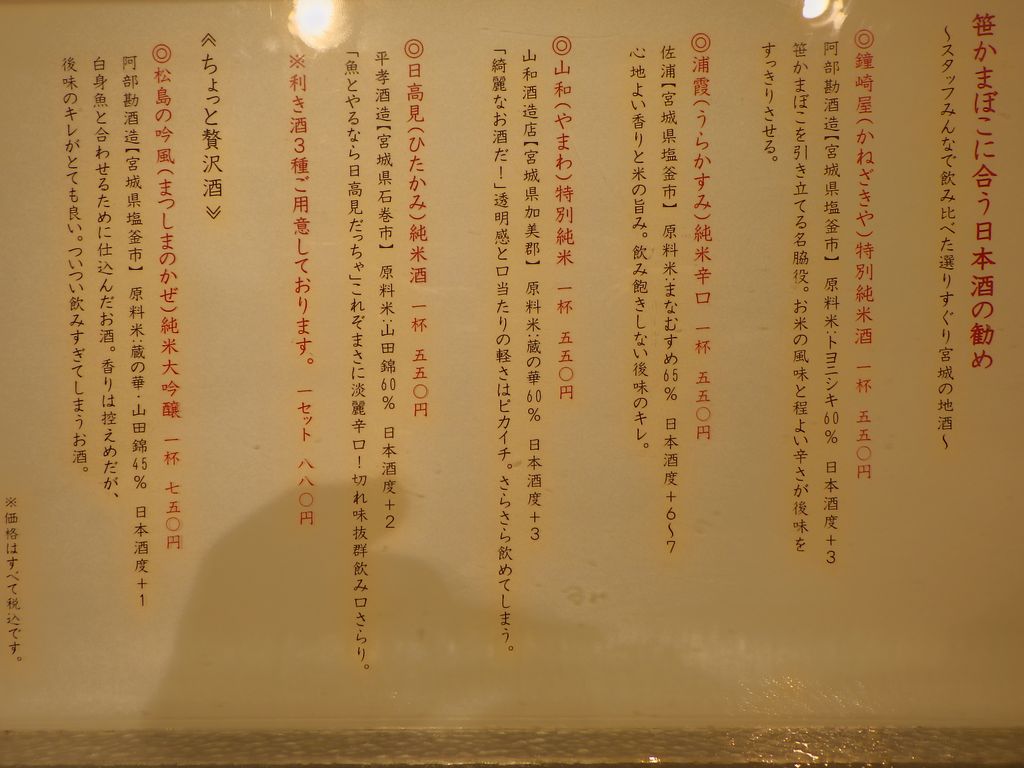 笹かまぼこに合う日本酒の勧め
～スタッフみんなで飲み比べた選りすぐり宮城の地酒～
◎鐘崎屋(かねざきや)特別純米酒 一杯 五五〇円
阿部勘酒造【宮城県塩釜市】 原料米:トヨニシキ60% 日本酒度+3
笹かまぼこを引き立てる名脇役。お米の風味と程よい辛さが後味を
すっきりさせる。
◎浦霞(うらかすみ)純米辛口 一杯 五五〇円
佐浦【宮城県塩釜市】 原料米:まなむすめ65% 日本酒度+6~7
心地よい香りと米の旨み。飲み飽きしない後味のキレ。
◎山和(やまわ)特別純米 一杯 五五〇円
山和酒造店【宮城県加美郡】 原料米:蔵の華60% 日本酒度+3
「綺麗なお酒だ!」透明感と口当たりの軽さはピカイチ。さらさら飲めてしまう。
◎日高見(ひたかみ)純米酒 一杯 五五〇円
平孝酒造【宮城県石巻市】 原料米:山田錦60% 日本酒度+2
「魚とやるなら日高見だっちゃ」これぞまさに淡麗辛口!切れ味抜群飲み口さらり。
※利き酒3種ご用意しております。 一セット 八八〇円
《ちょっと贅沢酒》
◎松島の吟風(まつしまのかぜ)純米大吟醸 一杯 七五〇円
阿部勘酒造【宮城県塩釜市】 原料米:蔵の華・山田錦45% 日本酒度+1
白身魚と合わせるために仕込んだお酒。香りは控えめだが、
後味のキレがとても良い。ついつい飲みすぎてしまうお酒。
※価格はすべて税込です。